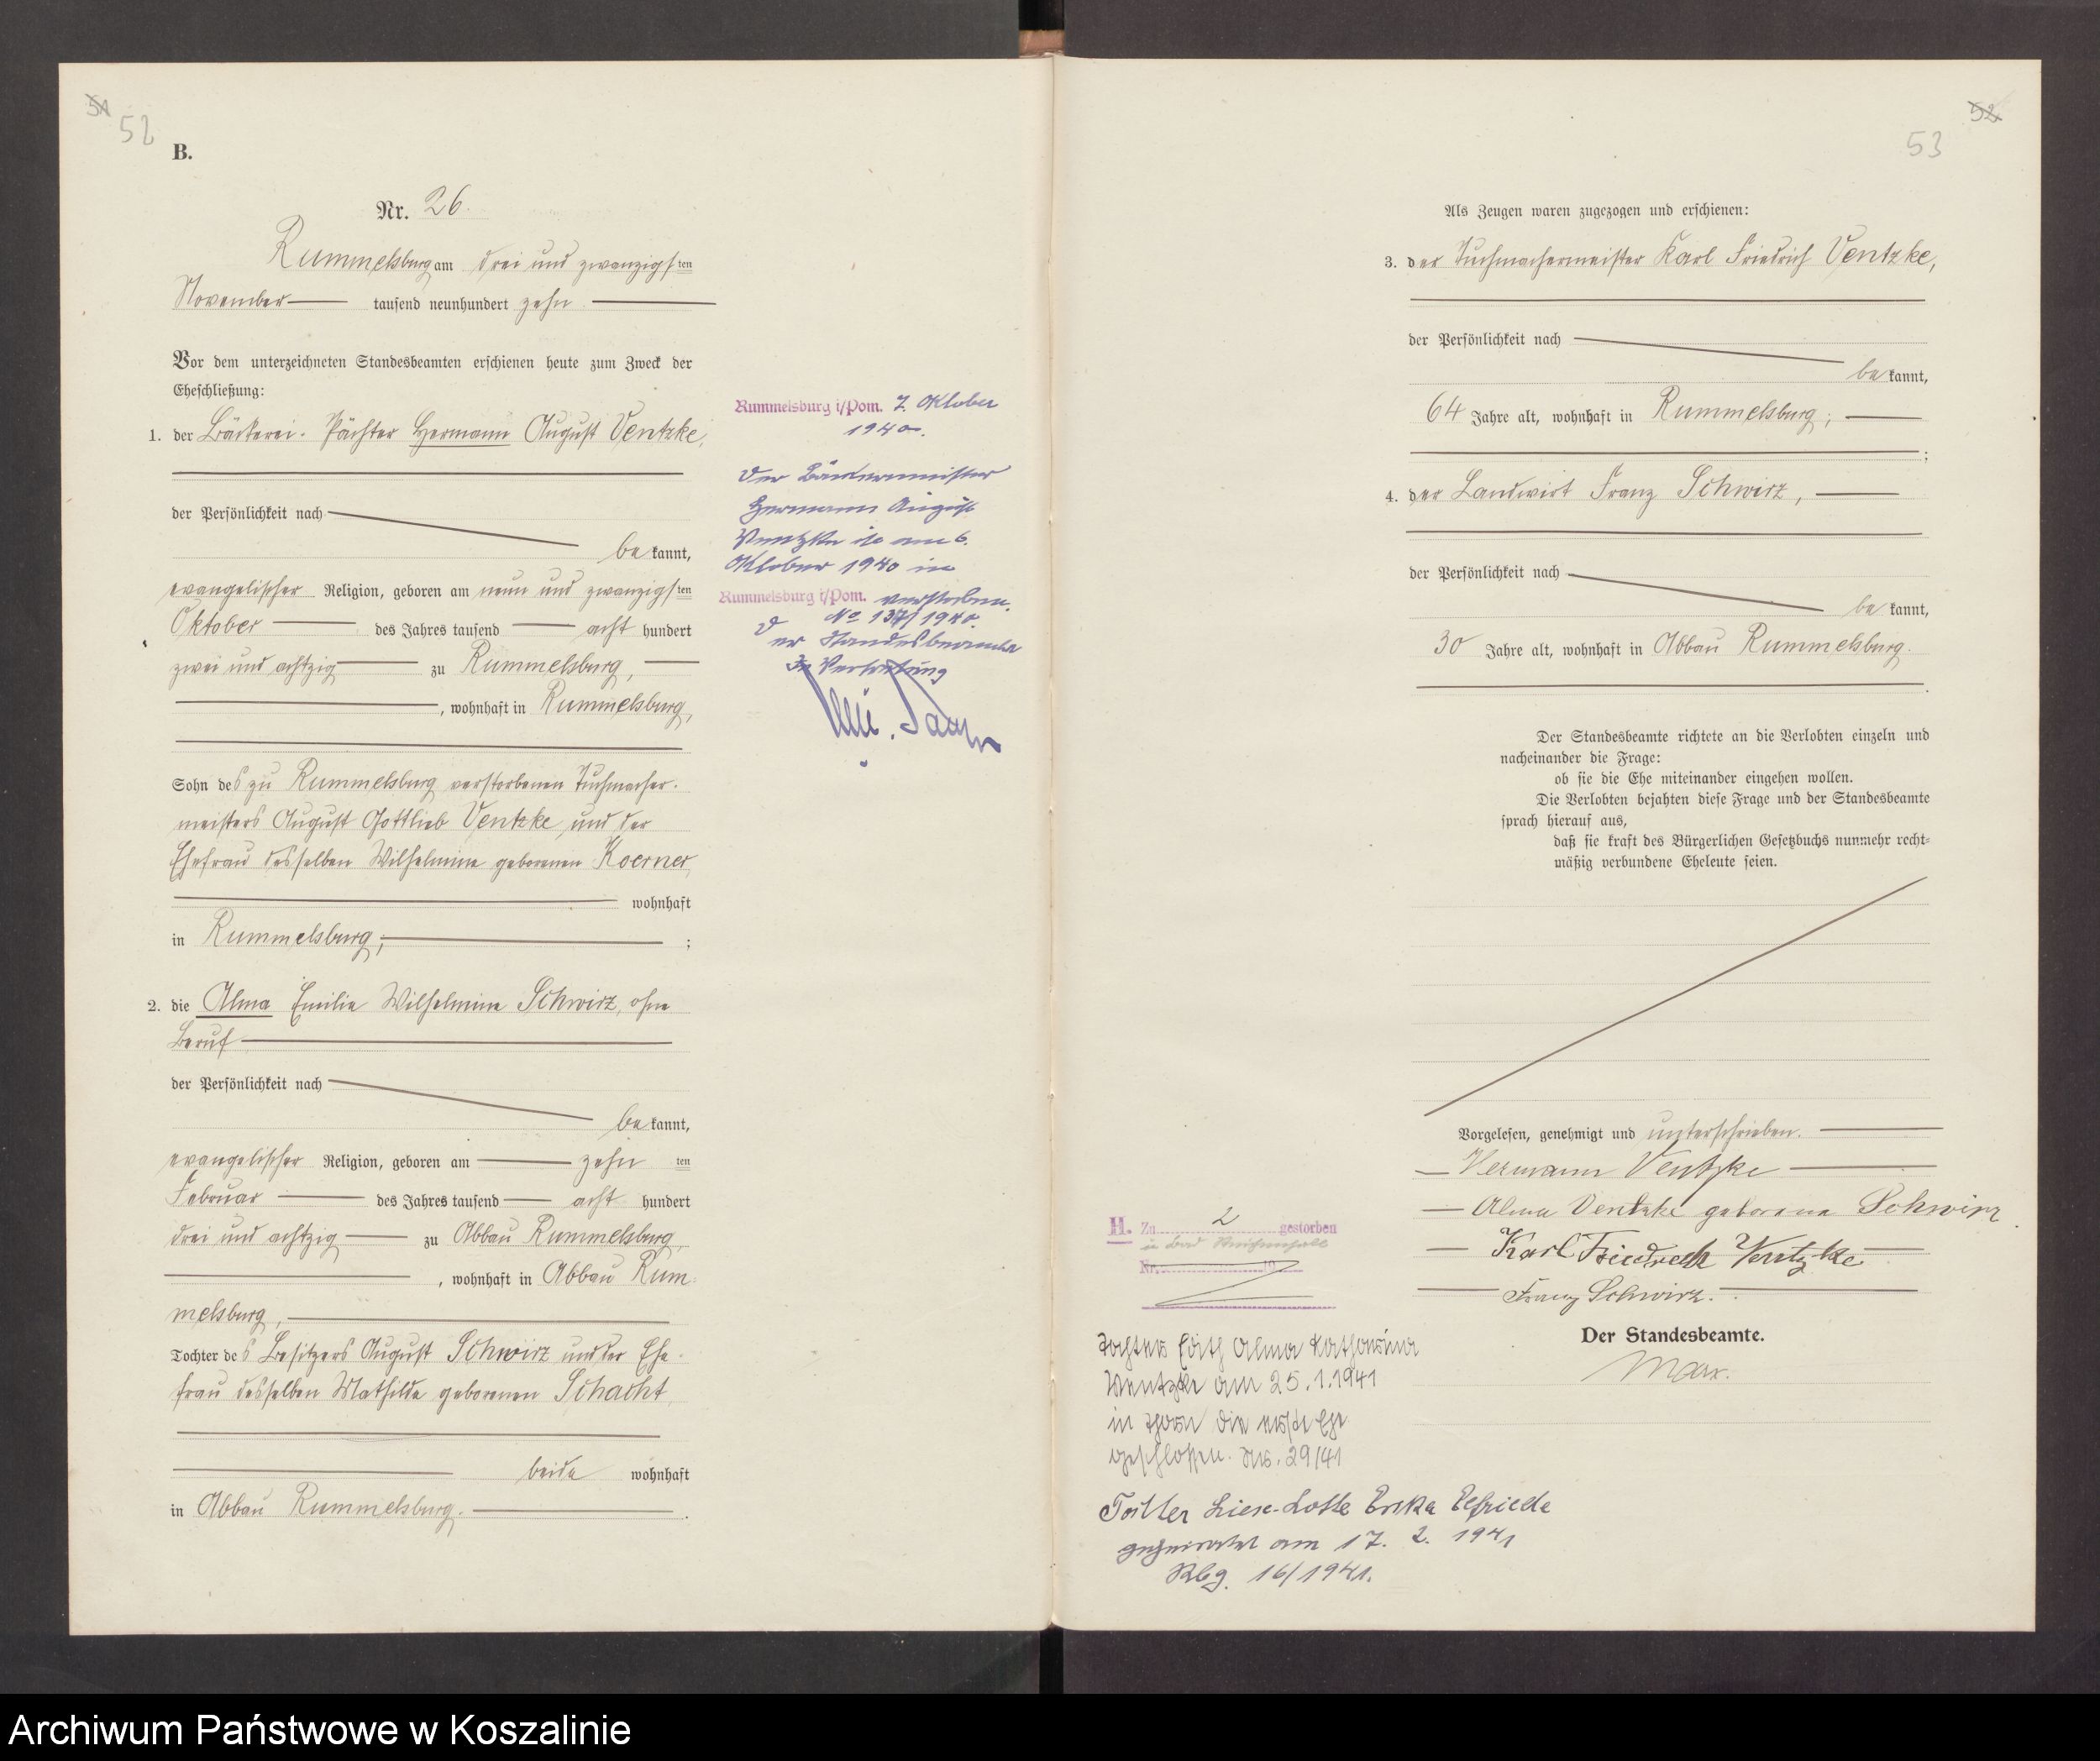 51
52
B.
Nr. 26.
Rummelsburg am drei und zwanzigsten
November tausend neunhundert zehn
Vor dem unterzeichneten Standesbeamten erschienen heute zum Zweck der
Eheschließung:
1. der Bäckerei-Pächter Hermann August Ventzke,
der Persönlichkeit nach
bekannt,
evangelischer Religion, geboren am neun und zwanzigsten
Oktober des Jahres tausend acht hundert
zwei und achtzig zu Rummelsburg,
, wohnhaft in Rummelsburg,
Sohn des zu Rummelsburg verstorbenen Tuchmacher-
meisters August Gottlieb Ventzke und der
Ehefrau desselben Wilhelmine geborenen Koerner,
wohnhaft
in Rummelsburg, ;
2. die Alma Emilie Wilhelmine Schwirz, ohne
Beruf
der Persönlichkeit nach
bekannt,
evangelischer Religion, geboren am zehn ten
Februar des Jahres tausend acht hundert
drei und achtzig zu Abbau Rummelsburg,
, wohnhaft in Abbau Rum-
melsburg,
Tochter des Besitzers August Schwirz und der Ehe-
frau desselben Mathilde geborenen Schacht,
beide wohnhaft
in Abbau Rummelsburg. .
Rummelsburg i/Pom. 7. Oktober
1940.
Der Bäckermeister
Hermann August
Ventzke ist am 6.
Oktober 1940 in
Rummelsburg i/Pom. verstorben.
No 137/1940.
Der Standesbeamte
In Vertretung
52
53
Als Zeugen waren zugezogen und erschienen:
3. der Tuchmachermeister Karl Friedrich Ventzke,
der Persönlichkeit nach
bekannt,
64 Jahre alt, wohnhaft in Rummelsburg;
;
4. der Landwirt Franz Schwirz,
der Persönlichkeit nach
bekannt,
30 Jahre alt, wohnhaft in Abbau Rummelsburg.
.
Der Standesbeamte richtete an die Verlobten einzeln und
nacheinander die Frage:
ob sie die Ehe miteinander eingehen wollen.
Die Verlobten bejahten diese Frage und der Standesbeamte
sprach hierauf aus,
daß sie kraft des Bürgerlichen Gesetzbuchs nunmehr recht-
mäßig verbundene Eheleute seien.
Vorgelesen, genehmigt und unterschrieben.
Hermann Ventzke
Alma Ventzke geborene Schwirz.
Karl Friedrich Ventzke
Franz Schwirz.
Der Standesbeamte.
Max.
H. Zu 2 gestorben
in Bad Reichenhall
Nr. 19
Tochter Edith Alma Katharina
Ventzke am 25.1.1941
in Thorn die erste Ehe
geschlossen. Nr. 29/41
Tochter Liese-Lotte Erika Elfriede
geheiratet am 17. 2. 1941
Rbg. 16/1941.
Archiwum Państwowe w Koszalinie